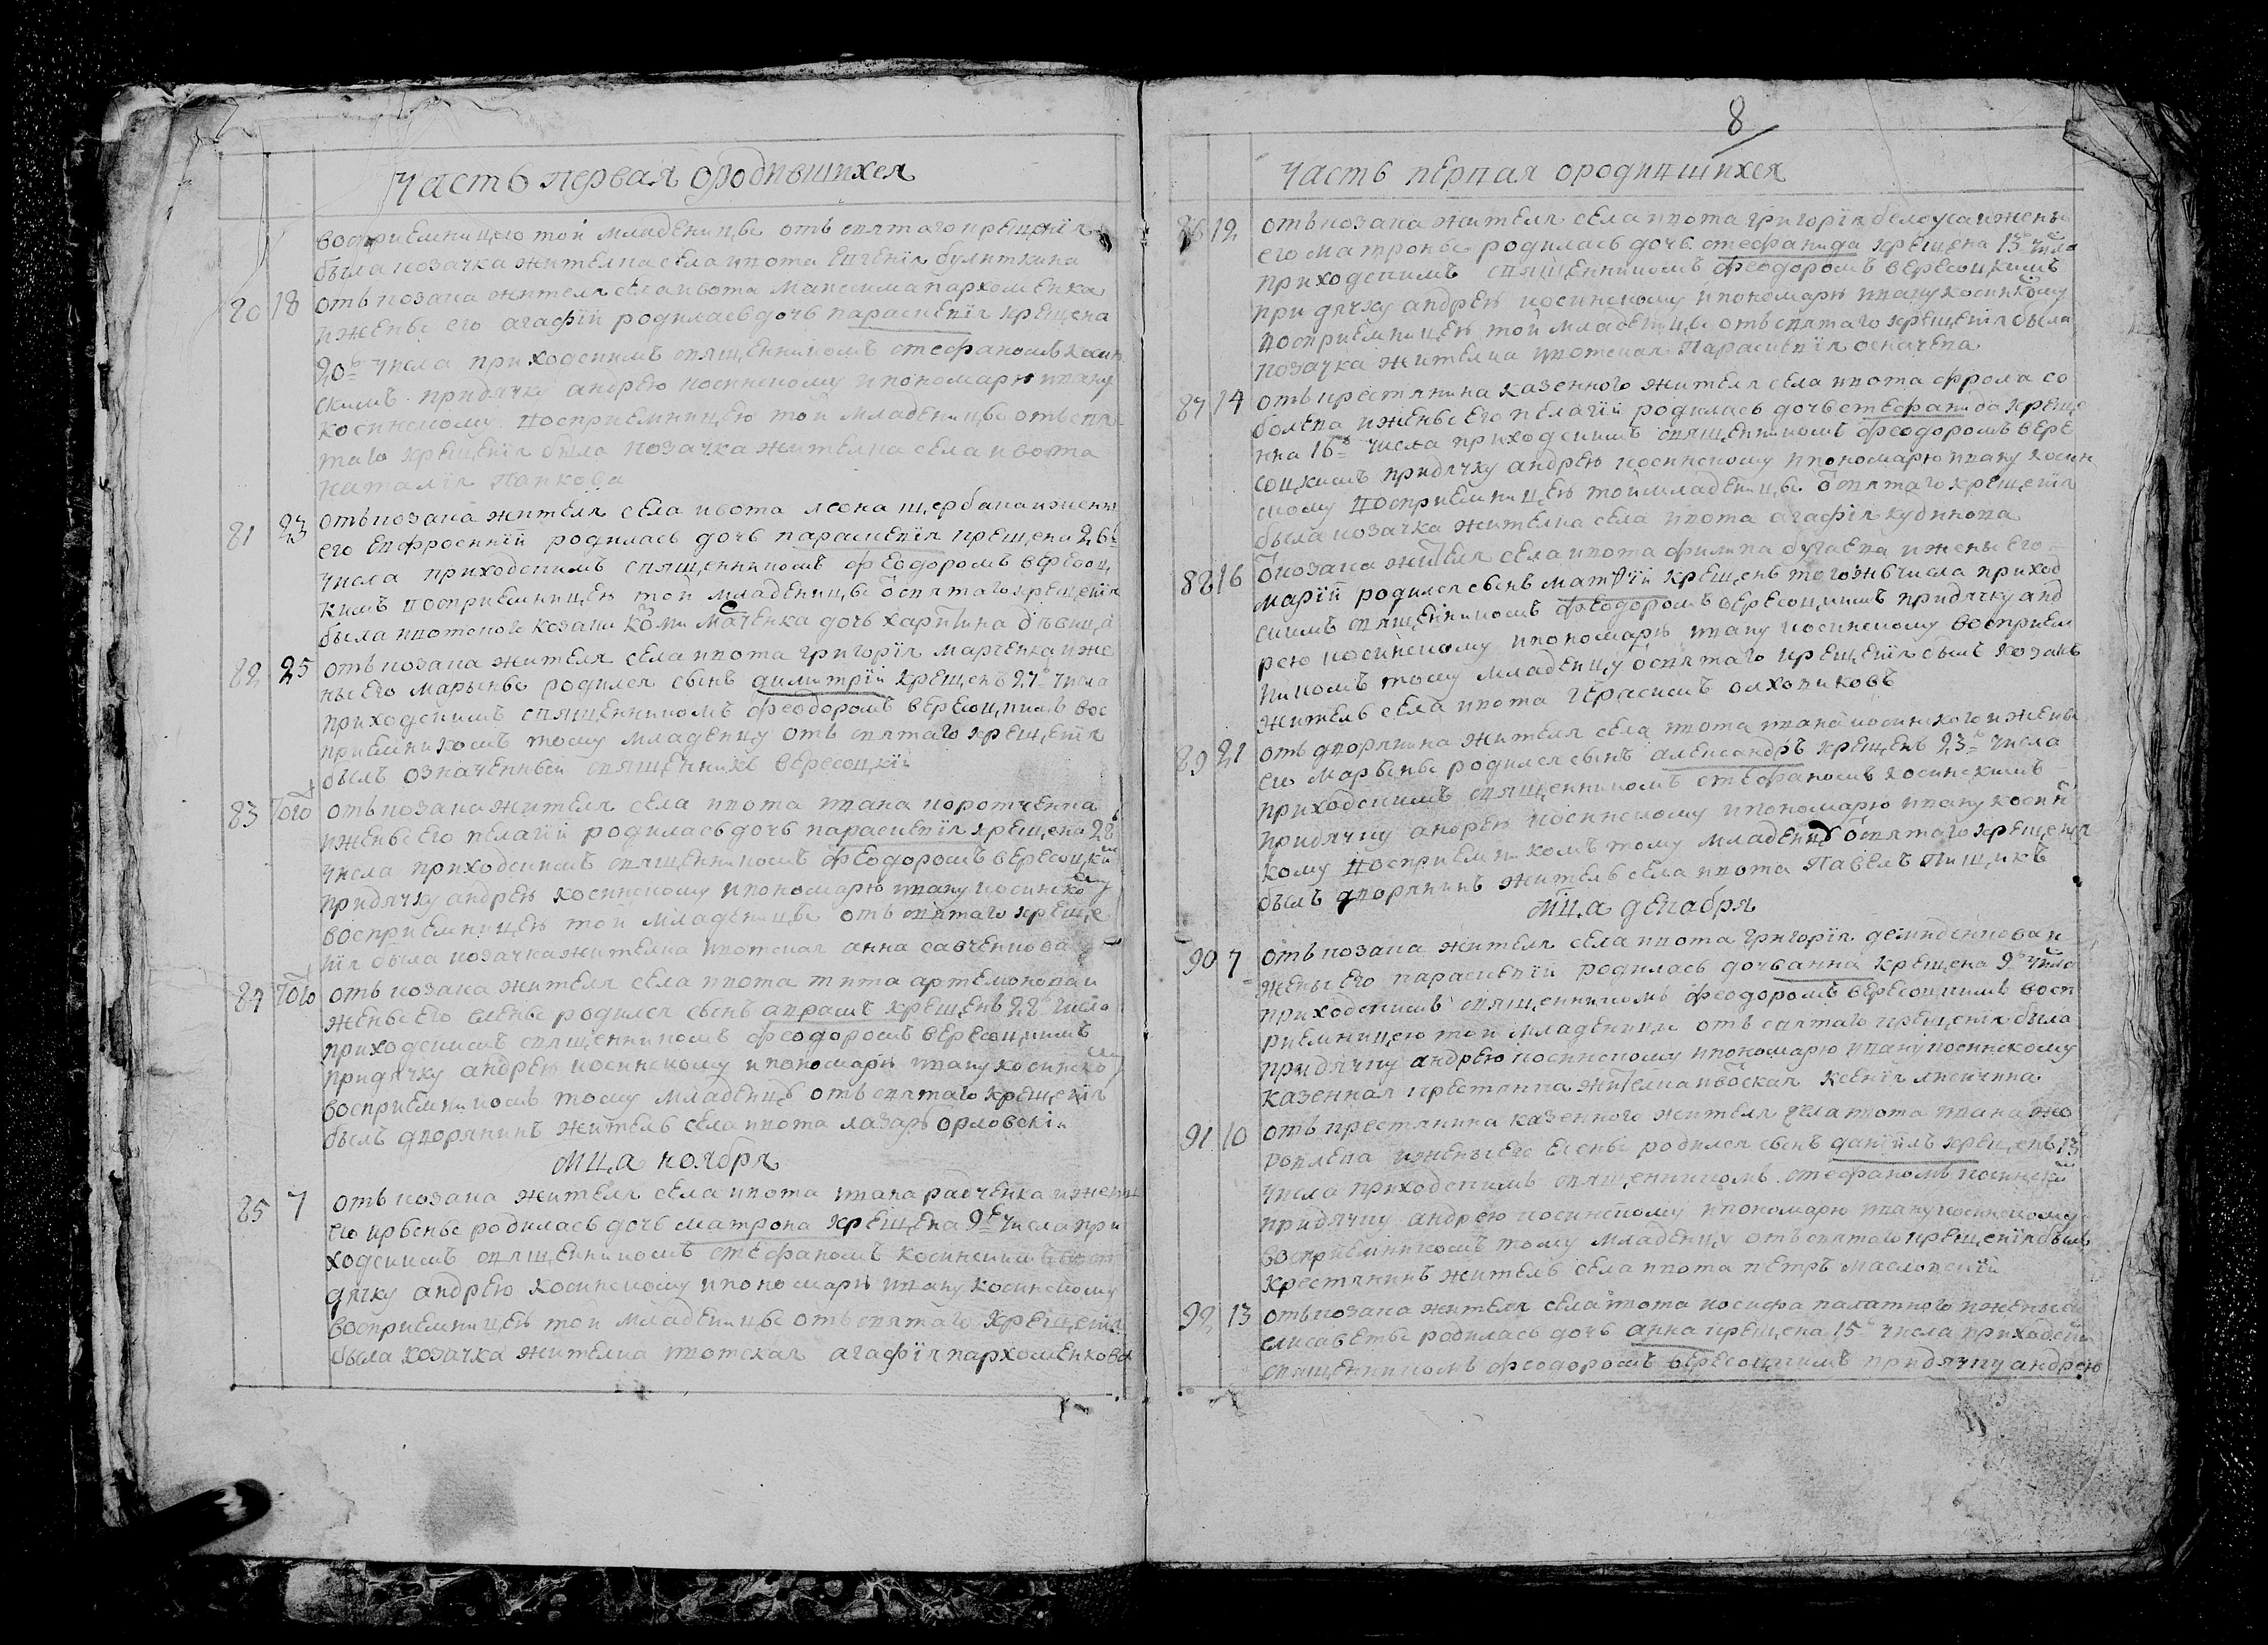 Часть первая ородившихся
восприемницею той младеницѣ отъ святаго крещенїя
была козачка жителка села ивота Евгенїя булиткина
80 18 отъ козака жителя села ивота Максима пархоменка
и женѣ его агафїи родилась дочь параскевїя крещена
20ᵒ числа приходскимъ священникомъ стефаномъ косин
скимъ при дячку андрею косинскому и пономарю ивану
косинскому восприемницею той младеницѣ отъ свя
таго крещенїя была козачка жителка села ивота
наталїя Панкова
81 23 отъ козака жителя села ивота леона щербака и жены
его Евфросинїи родилась дочь параскевїя крещена 26ᵒ
числа приходскимъ священникомъ феодоромъ вересоц
кимъ восприемницею той младеницѣ ѿ святаго крещенїя
была ивотского козака дочь харитина дѣвица
82 25 отъ козака жителя села ивота григорїя марченка и же
ны его марьинѣ родился сынъ димитрїй крещенъ 27ᵒ числа
приходскимъ священникомъ феодоромъ вересоцкимъ вос
приемникомъ тому младенцу отъ святаго крещенїя
былъ означенный священникъ вересоцкїй
83 Того отъ козака жителя села ивота ивана коротченка
и женѣ его пелагїи родилась дочь параскевїя крещена 28
числа приходскимъ священникомъ феодоромъ вересоцкимъ
при дячку андрею косинскому и пономарю ивану косинскому
восприемницею той младеницѣ отъ святаго креще
нїя была козачка жителка ивотская анна савченкова
84 Того отъ козака жителя села ивота тита артемонова и
женѣ его еленѣ родился сынъ авраамъ крещенъ 28 числа
приходскимъ священникомъ феодоромъ вересоцкимъ
при дячку андрею косинскому и пономарю ивану косинскому
восприемникомъ тому младенцу отъ святаго крещенїя
былъ дворянинъ житель села ивота лазарь орловскїй
мца ноября
85 7 отъ козака жителя села ивота ивана радченка и жены
его ирынѣ родилась дочь матрона крещена 9ᵒ числа при
ходскимъ священникомъ стефаномъ косинскимъ
дячку андрею косинскому и пономарю ивану косинскому
восприемницею той младеницѣ отъ святаго крещенїя
была козачка жителка ивотская агафїя пархоменкова
8
Часть первая ородившихся
86 12 отъ козака жителя села ивота григорїя белоуса и жены
его матронѣ родилась дочь стефанида крещена 13ᵒ числа
приходскимъ священникомъ феодоромъ вересоцкимъ
при дячку андрею косинскому и пономарю ивану косинкому
восприемницею той младеницѣ отъ святаго крещенїя была
козачка жителка ивотская Параскевїя
87 14 отъ крестянина казенного жителя села ивота фрола со
болева и женѣ его пелагїи родилась дочь стефанида креще
нна 16ᵒ числа приходскимъ священникомъ феодоромъ вере
соцкимъ при дячку андрею косинскому и пономарю ивану косин
скому восприемницею той младеницѣ ѿ святаго крещенїя
была козачка жителка села ивота агафїя кудинова
88 16 ѿ козака жителя села ивота филипа бугаева и жены его
марїи родился сынъ матѳїй крещенъ того жъ числа приход
скимъ священникомъ феодоромъ вересоцкимъ при дячку анд
рею косинскому и пономарю ивану косинскому восприем
никомъ тому младенцу ѿ святаго крещенїя былъ козакъ
житель села ивота герасимъ олховиковъ
89 21 отъ дворянина жителя села ивота ивана косинского и жены
его марьинѣ родился сынъ александръ крещенъ 23ᵒ числа
приходскимъ священникомъ стефаномъ косинскимъ
при дячку андрею косинскому и пономарю ивану косинс
кому восприемникомъ тому младенцу ѿ святаго крещенїя
былъ дворянинъ житель села ивота Павелъ Пищикъ
мца декабря
90 7 отъ козака жителя села ивота григорїя демиденкова и
жены его параскевїи родилась дочь анна крещена 9ᵒ числа
приходскимъ священникомъ феодоромъ вересоцкимъ восп
риемницею той младеници отъ святаго крещенїя была
при дячку андрею косинскому и пономарю ивану косинскому
казенная крестянка жителка ивоская ксенїя лисичкина
91 10 отъ крестянина казенного жителя села ивота ивана жо
ровлева и жены его еленѣ родился сынъ данїилъ крещенъ 13
числа приходскимъ священникомъ стефаномъ косинским
при дячку андрею косинскому и пономарю ивану косинскому
восприемникомъ тому младенцу отъ святаго крещенїя былъ
крестянинъ житель села ивота петръ масловскїй
92 13 отъ козака жителя села ивота иосифа палатного и жены его
елисаветѣ родилась дочь анна крещена 15ᵒ числа приходским
священникомъ феодоромъ вересоцкимъ при дячку андрею